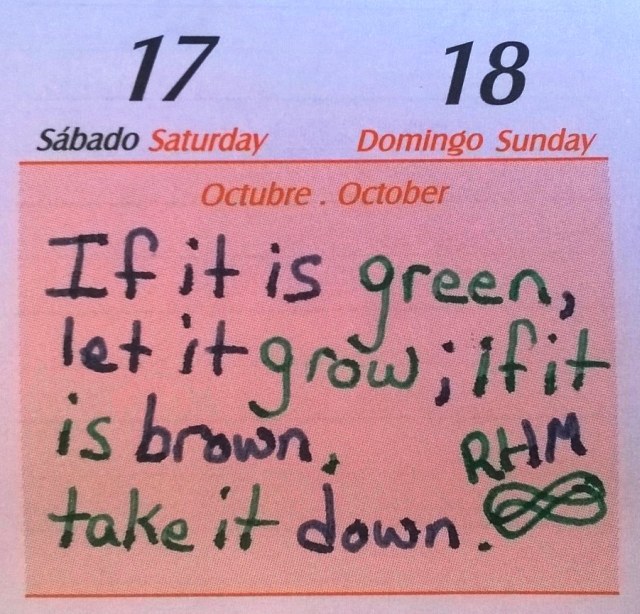 17 18
Sábado Saturday Domingo Sunday
Octubre . October
If it is green,
let it grow; if it
is brown,
take it down.
RHM